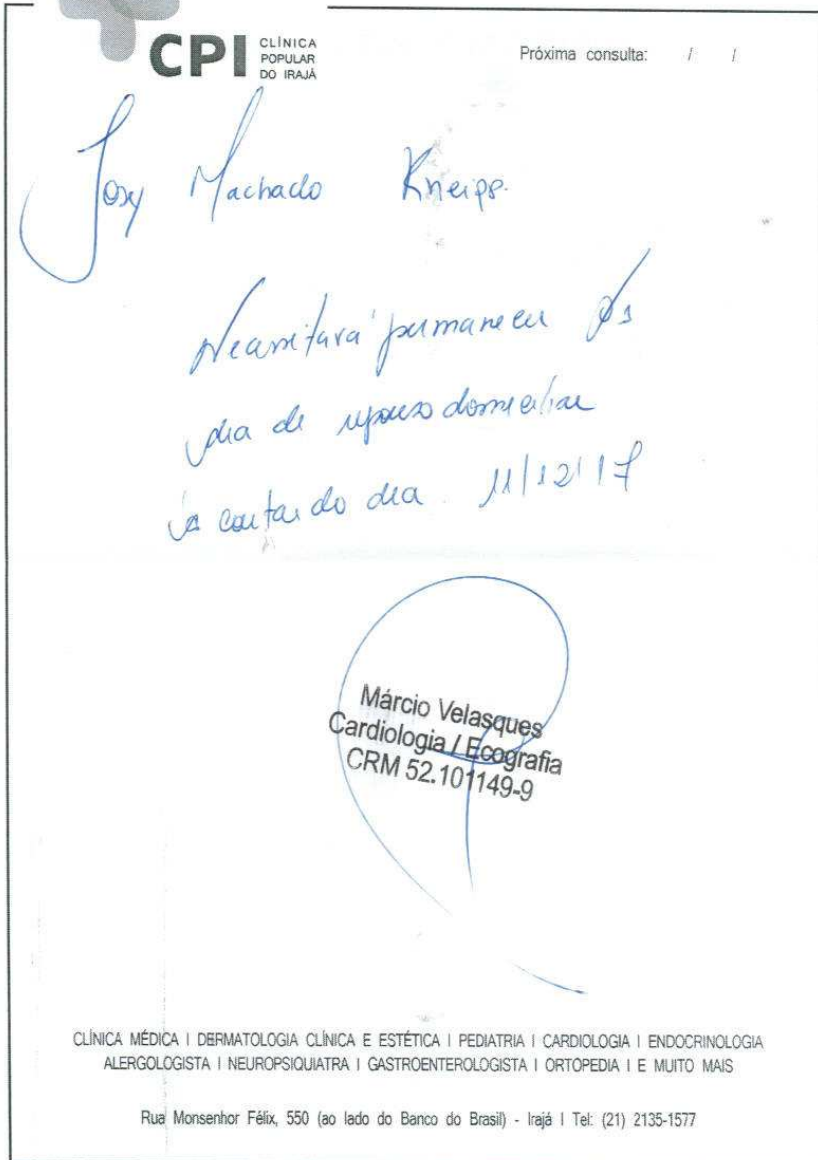 CPI
CLÍNICA
POPULAR
DO IRAJÁ
Próxima consulta: / /
Josy Machado Kneipp.
Necessitará permanecer
dia de repouso domiciliar
a contar do dia 11/12/17
Márcio Velasques
Cardiologia / Ecografia
CRM 52.101149-9
CLÍNICA MÉDICA I DERMATOLOGIA CLÍNICA E ESTÉTICA I PEDIATRIA I CARDIOLOGIA I ENDOCRINOLOGIA
ALERGOLOGISTA I NEUROPSIQUIATRA I GASTROENTEROLOGISTA I ORTOPEDIA I E MUITO MAIS
Rua Monsenhor Félix, 550 (ao lado do Banco do Brasil) - Irajá I Tel: (21) 2135-1577